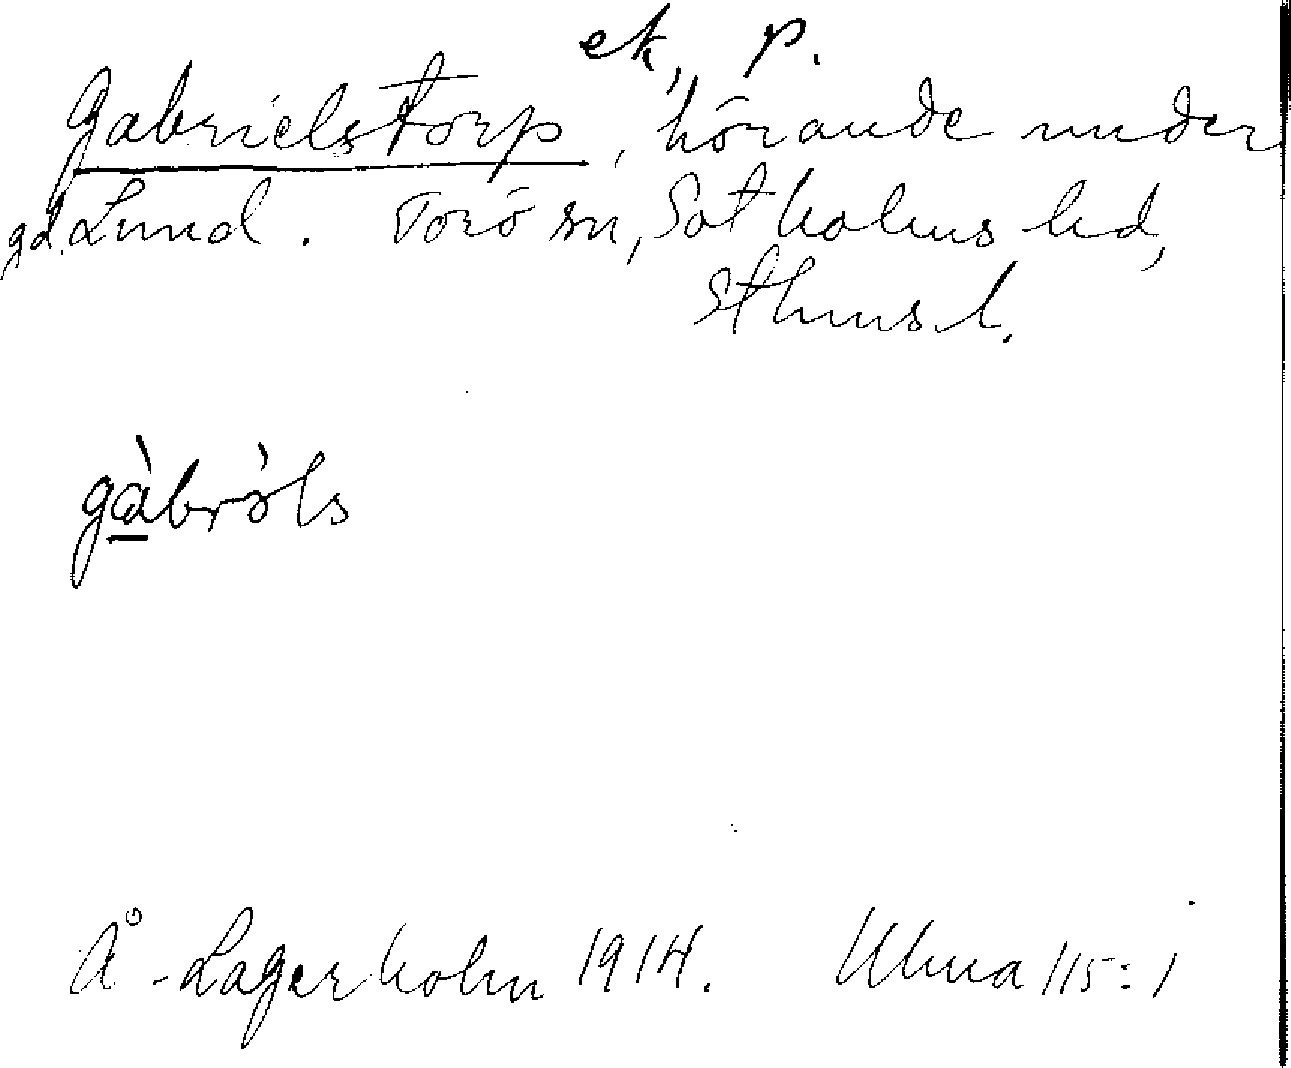 ek, p.
Gabrielstorp, hörande under
gd. Lund. Torö sn, Sotholms hd,
Sthms l.
gàbrə̀ls
Å. Lagerholm 1914. Uhua 115:1